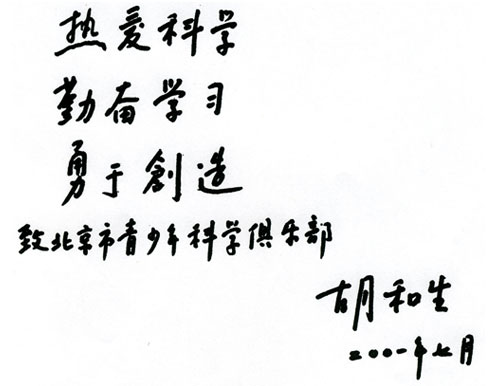 热爱科学
勤奋学习
勇于創造
致北京市青少年科学俱乐部
胡和生
二〇〇一年七月